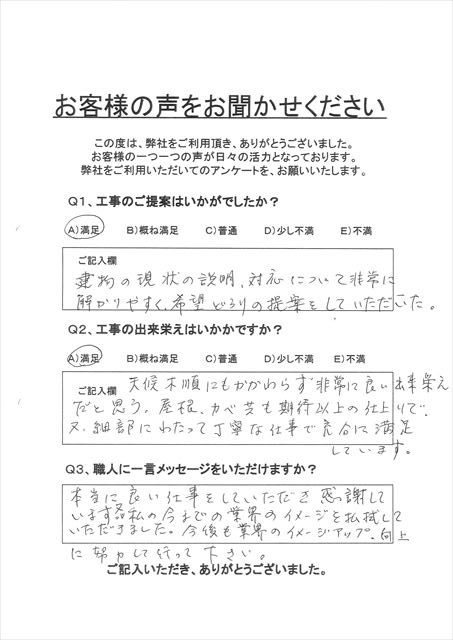 お客様の声をお聞かせください
この度は、弊社をご利用頂き、ありがとうございました。
お客様の一つ一つの声が日々の活力となっております。
弊社をご利用いただいてのアンケートを、お願いいたします。
Q1、工事のご提案はいかがでしたか？
A)満足 B)概ね満足 C)普通 D)少し不満 E)不満
ご記入欄
建物の現状の説明、対応について非常に
解かりやすく、希望どうりの提案をしていただいた。
Q2、工事の出来栄えはいかかですか？
A)満足 B)概ね満足 C)普通 D)少し不満 E)不満
天候不順にもかかわらず非常に良い出来栄え
ご記入欄
だと思う。屋根、カベ共も期待以上の仕上りで、
又、細部にわたって丁寧な仕事で充分に満足
しています。
Q3、職人に一言メッセージをいただけますか？
本当に良い仕事をしていただき感謝して
います。私の今までの業界のイメージを払拭して
いただきました。今後も業界のイメージアップ、向上
に努力して行って下さい。
ご記入いただき、ありがとうございました。